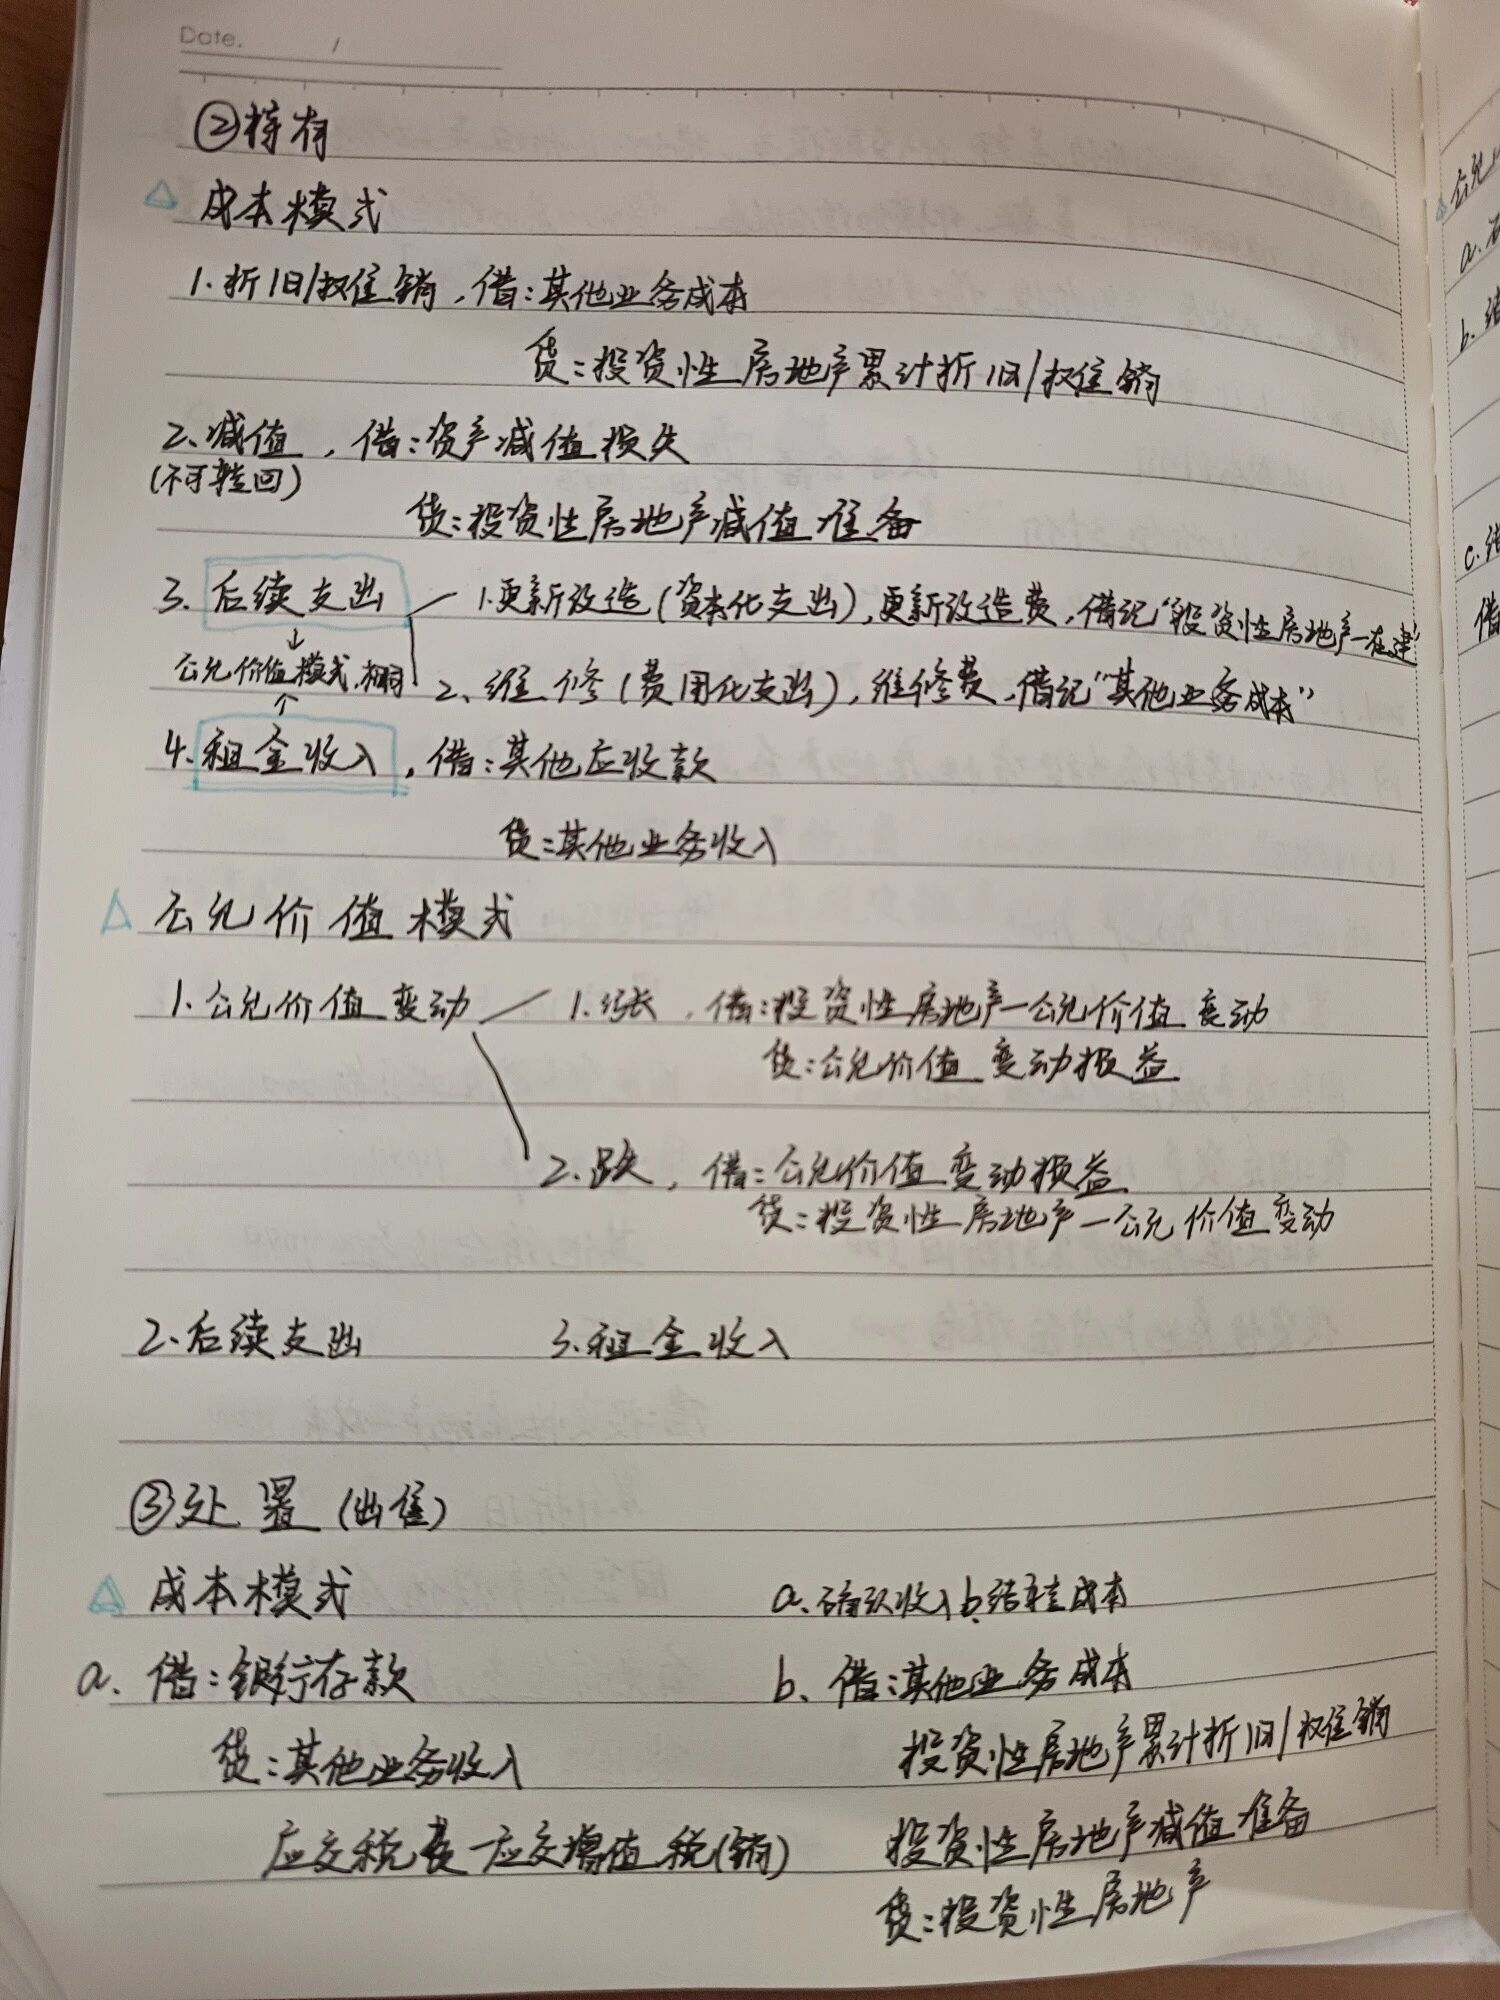 Date. /
②持有
△ 成本模式
1.折旧/摊销，借：其他业务成本
贷：投资性房地产累计折旧/摊销
2、减值，借：资产减值损失
(不可转回)
贷：投资性房地产减值准备
3. 后续支出 1.更新改造(资本化支出)，更新改造费，借记“投资性房地产—在建”
↓
公允价值模式，相同
2、维修(费用化支出)，维修费，借记“其他业务成本”
↑
4.租金收入，借：其他应收款
贷：其他业务收入
△ 公允价值模式
1.公允价值变动 1.涨，借：投资性房地产—公允价值变动
贷：公允价值变动损益
2.跌，借：公允价值变动损益
贷：投资性房地产—公允价值变动
2.后续支出 3.租金收入
③处置(出售)
△ 成本模式 a.确认收入b.结转成本
a. 借：银行存款 b、借：其他业务成本
贷：其他业务收入 投资性房地产累计折旧/摊销
应交税费—应交增值税(销) 投资性房地产减值准备
贷：投资性房地产
公允
a.
b. 结
c.结
借